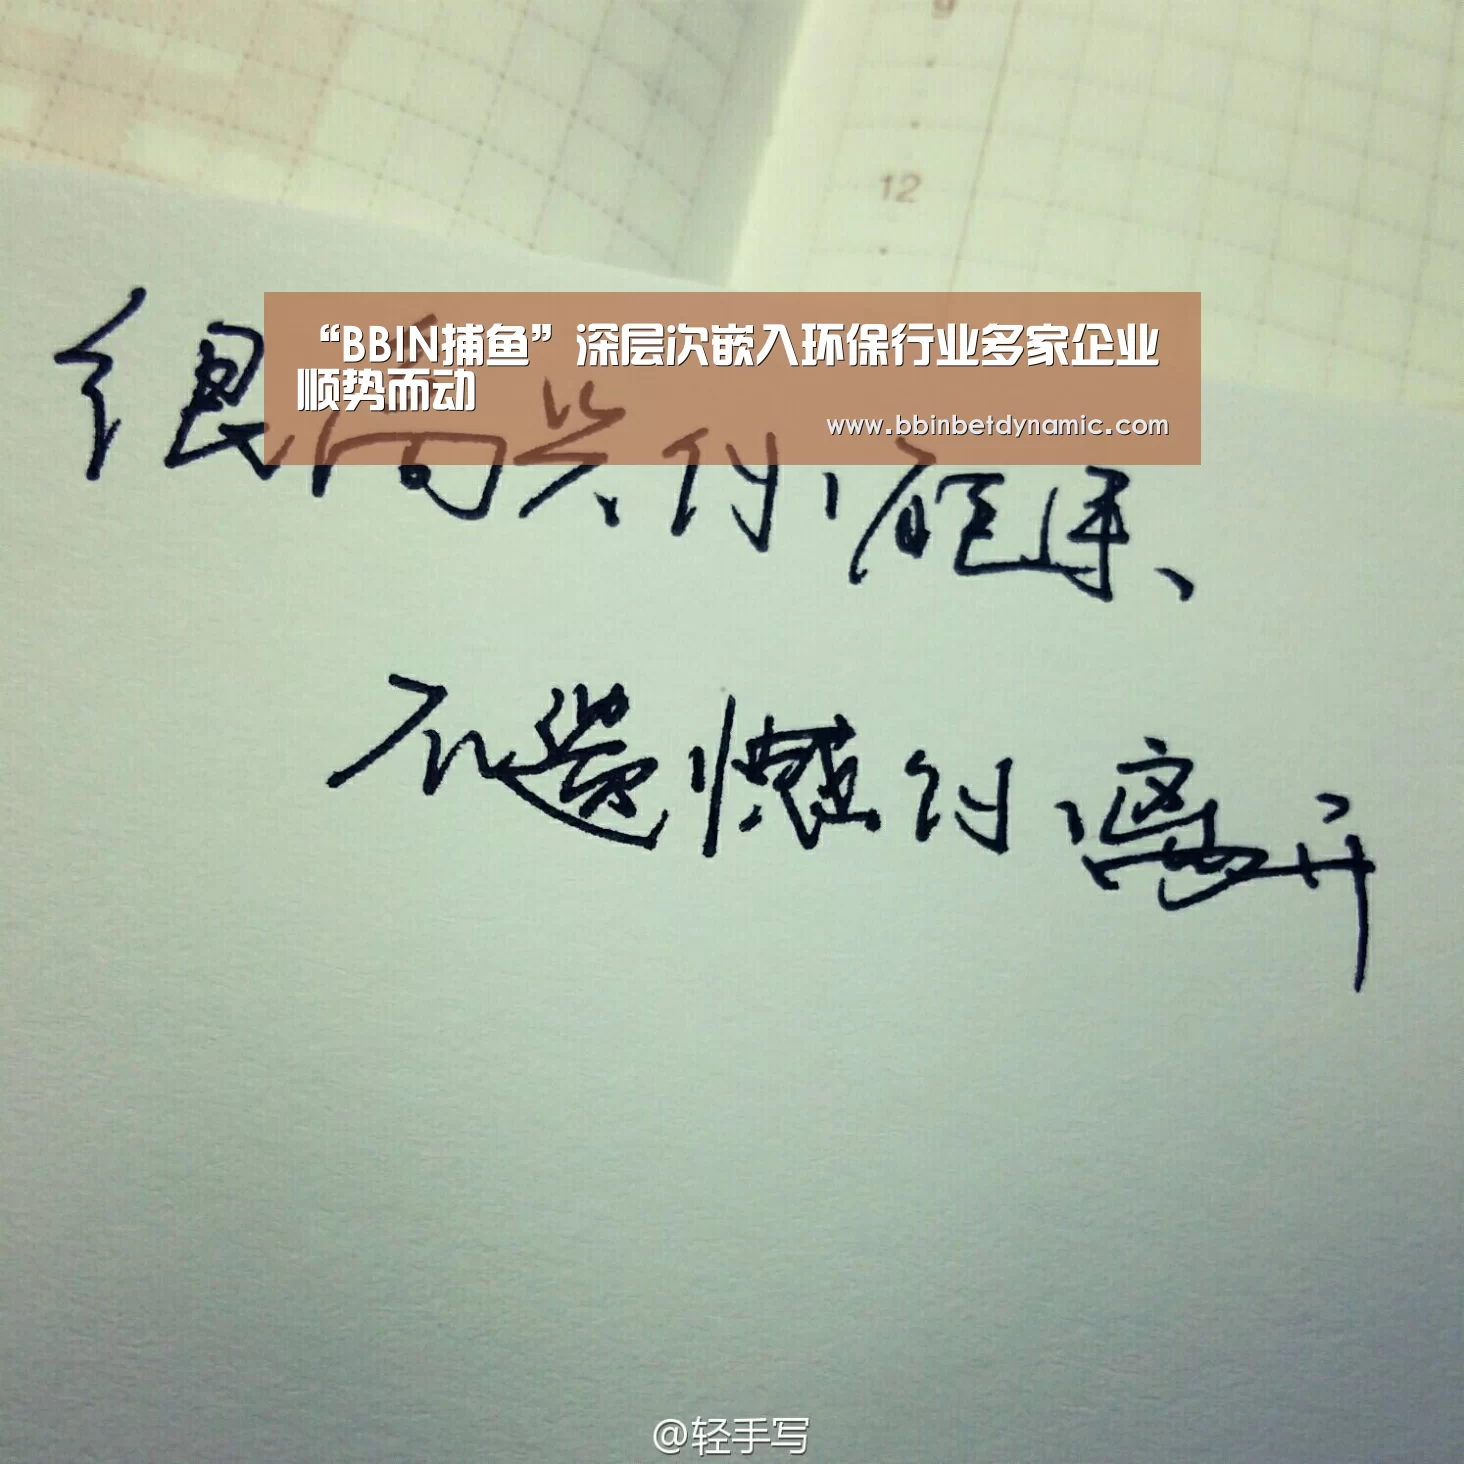 9
12
“BBIN捕鱼”深层次嵌入环保行业多家企业
顺势而动
www.bbinbetdynamic.com
很高兴你能来
不遗憾你离开
@轻手写